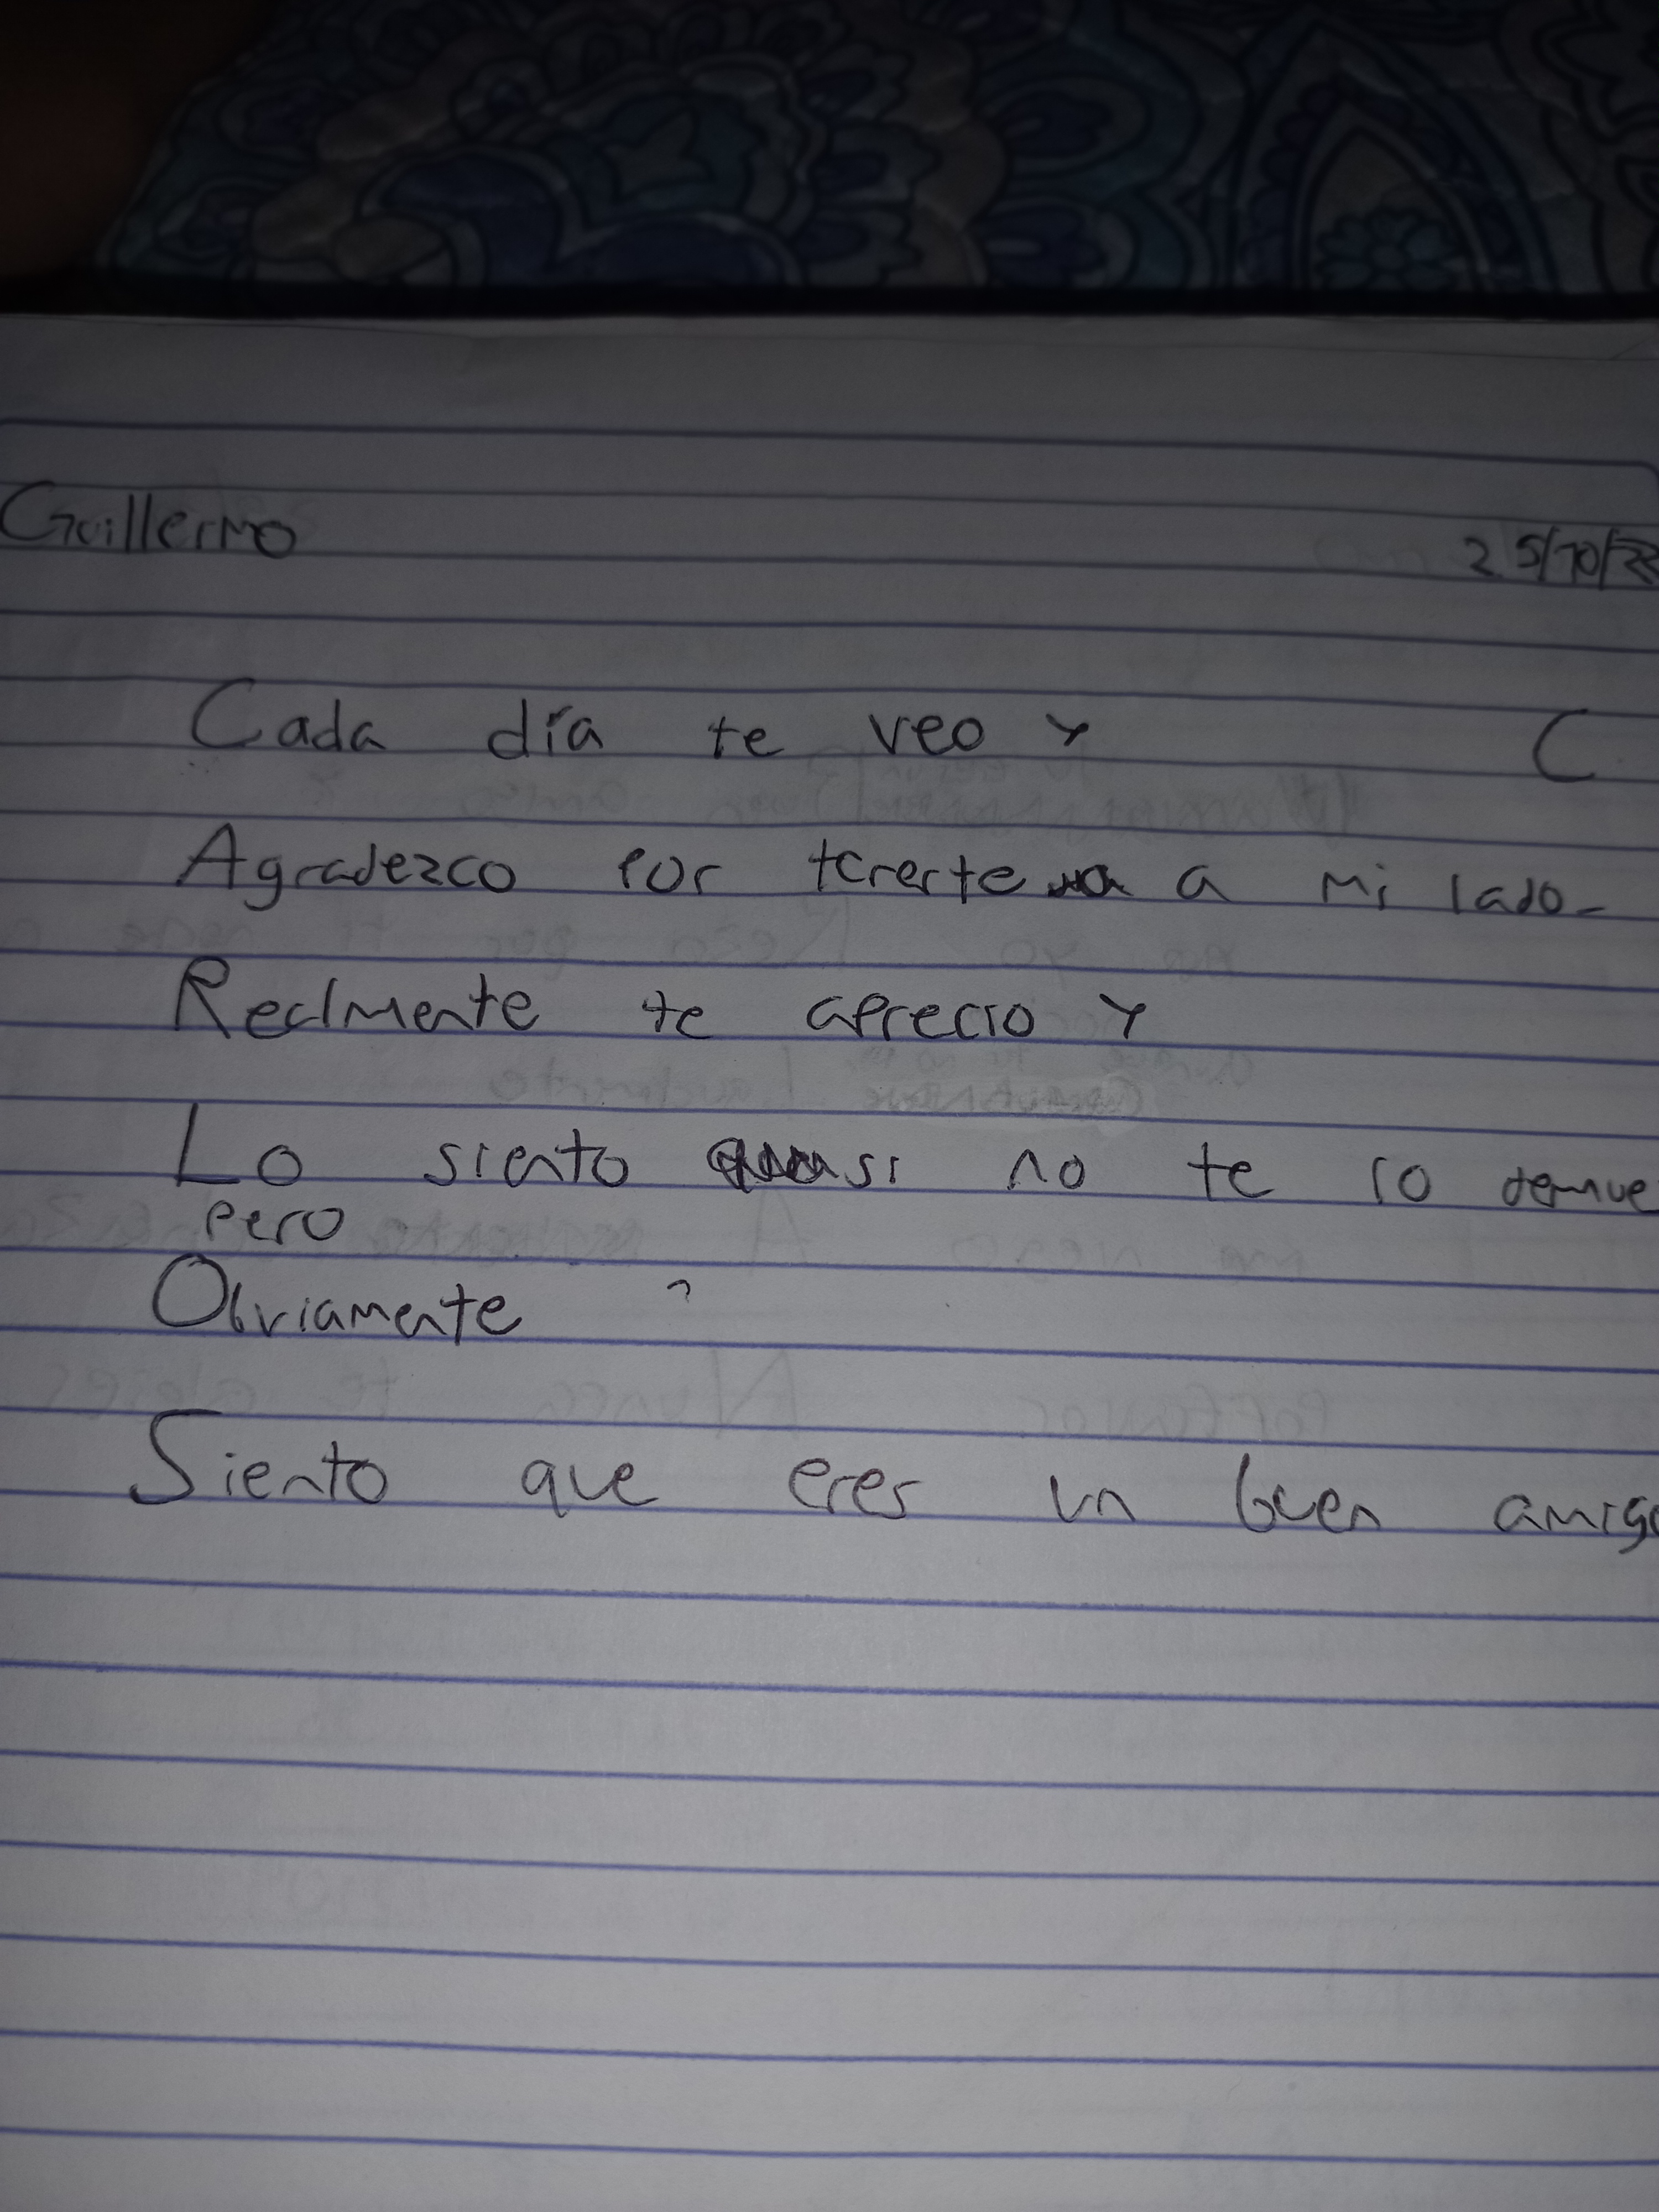 Guillermo
25/10/
Cada día te veo y C
Agradezco por tenerte a a mi lado-
Realmente te aprecio y
Lo siento si no te lo demue
pero
Obviamente ?
Siento que eres un buen amigo